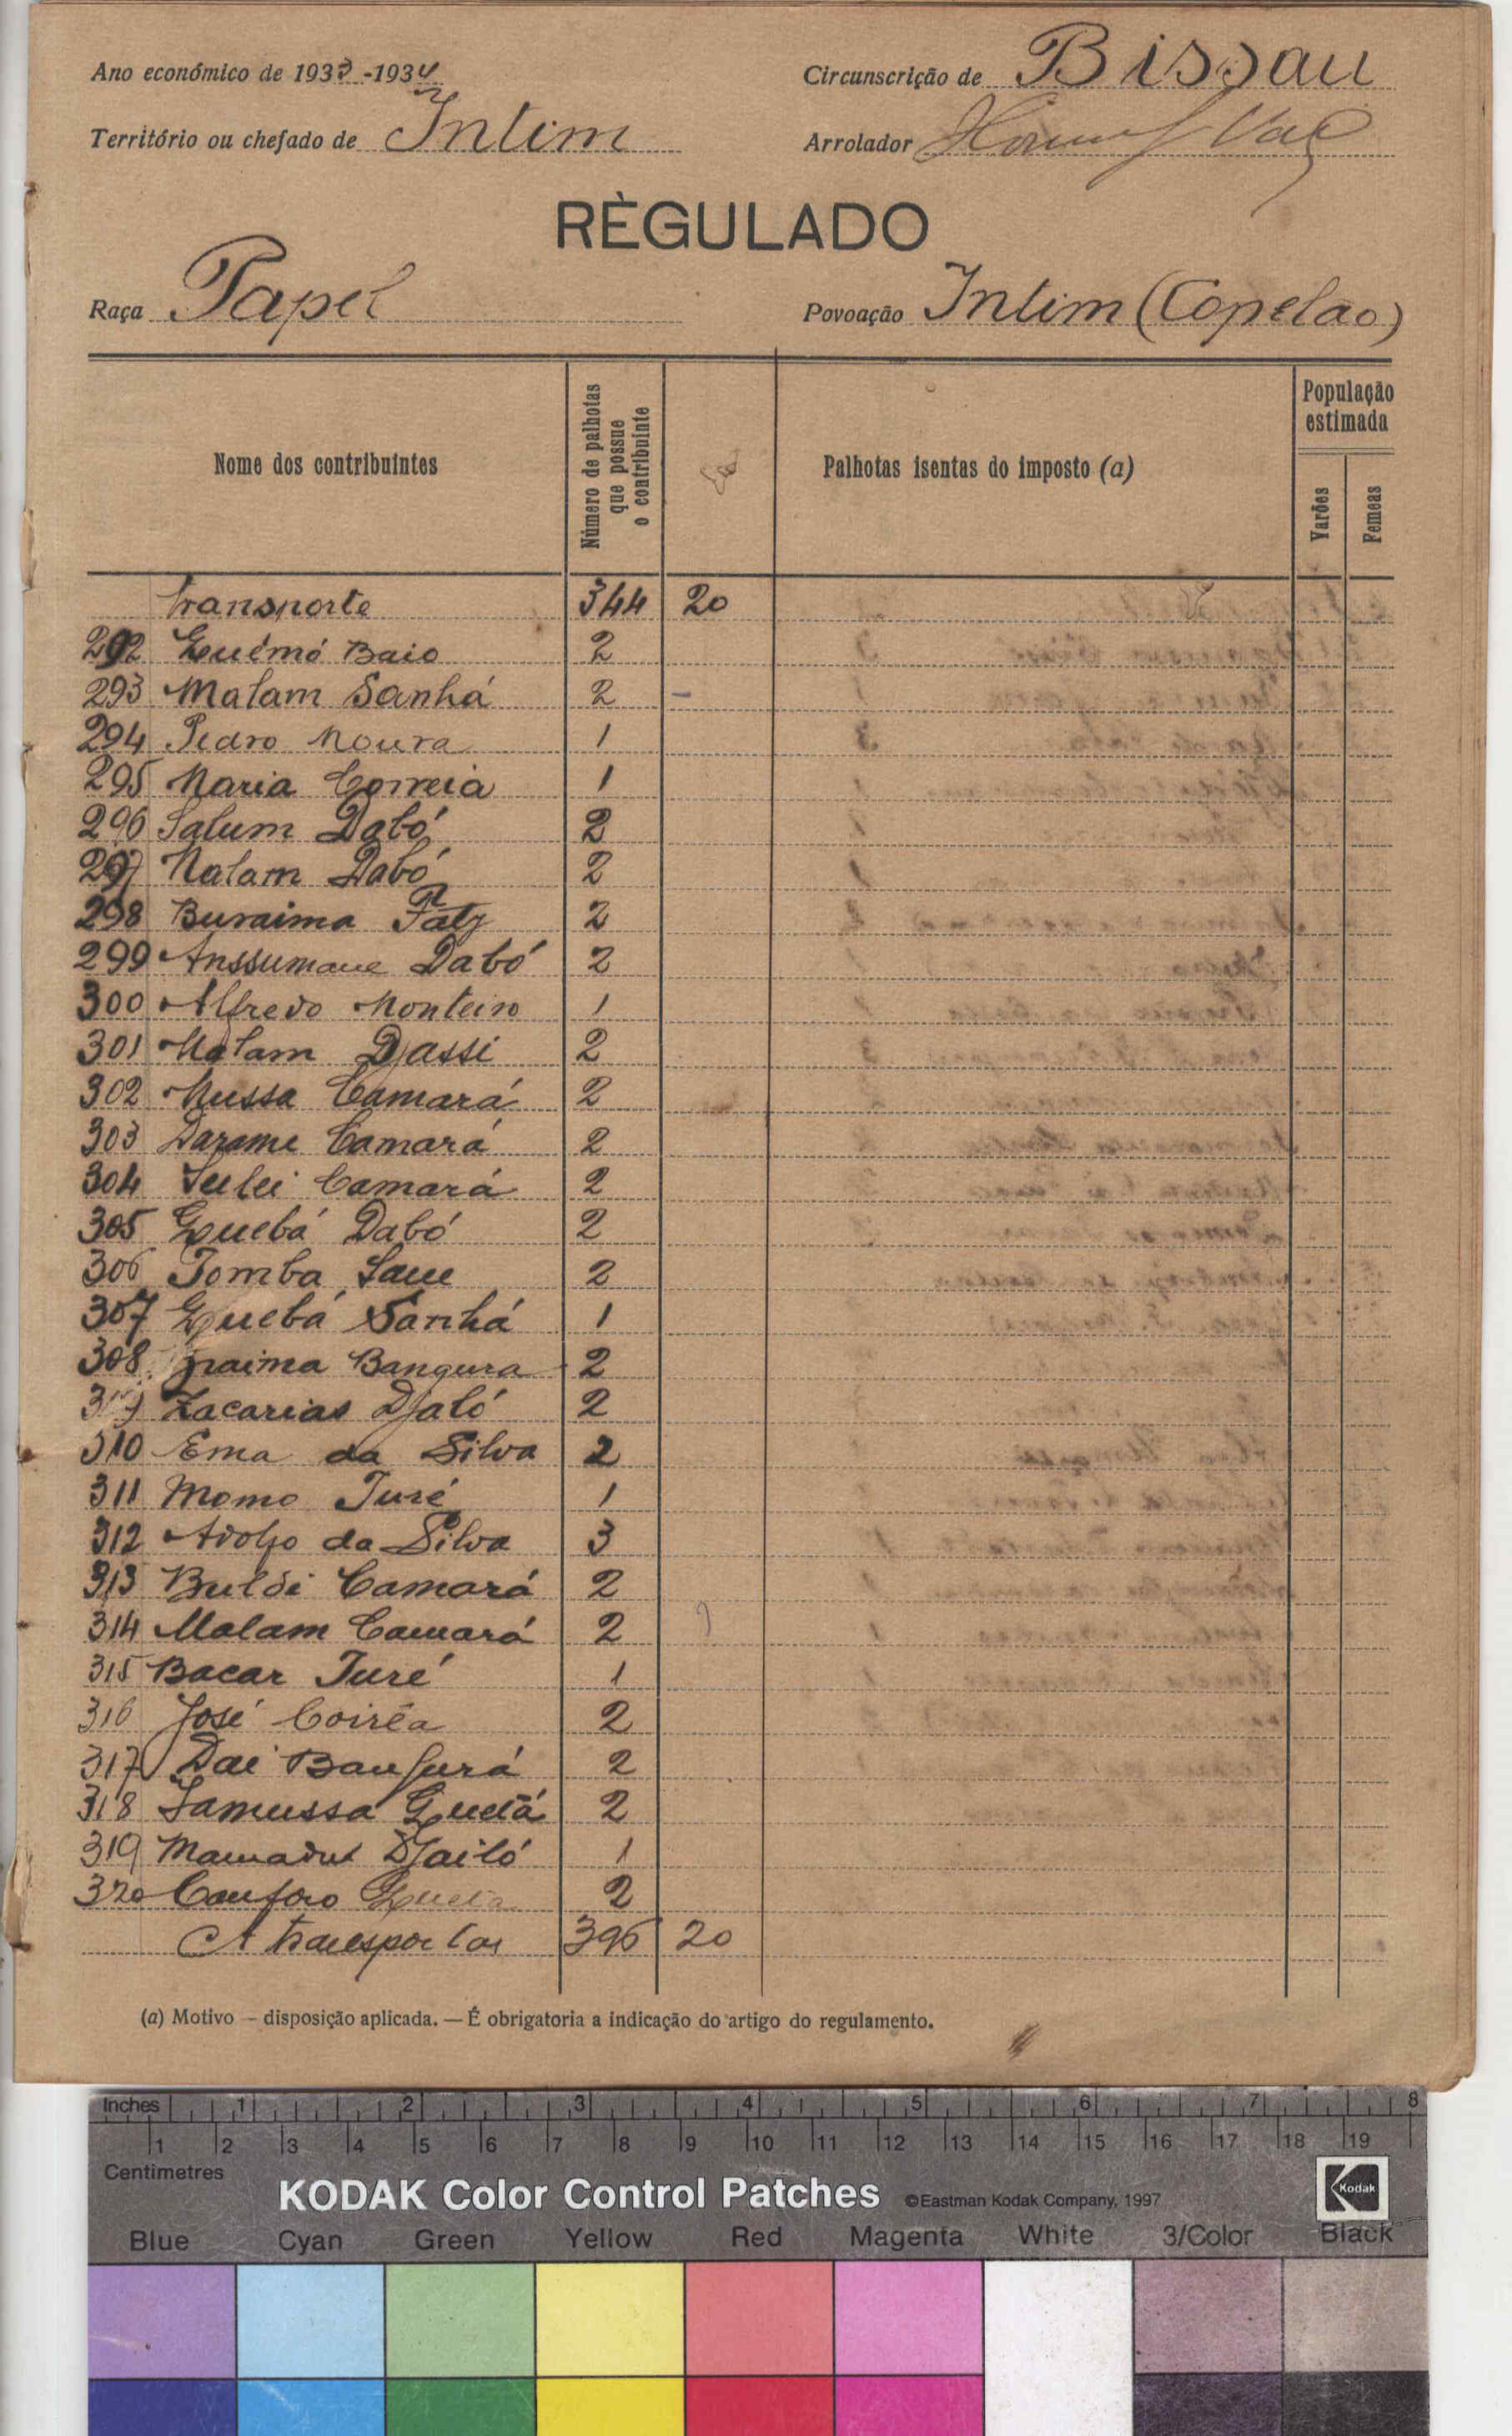 Ano económico de 1933-1934
Circunscrição de Bissau
Território ou chefado de Intim
Arrolador
RÈGULADO
Raça Papel
Povoação Intim (Copelão)
Nome dos contribuintes
Número de palhotas que possue o contribuinte
Palhotas isentas do imposto (a)
População estimada
Varões
Femeas
transporte 344 20
292 Quémó Baio 2
293 Malam Sanhá 2
294 Pedro Moura 1
295 Maria Correia 1
296 Salum Dabó 2
297 Malam Dabó 2
298 Buraima Faty 2
299 Anssumane Dabó 2
300 Alfredo Monteiro 1
301 Malam Djassi 2
302 Mussa Camará 2
303 Darame Camará 2
304 Sulei Camará 2
305 Quebá Dabó 2
306 Tomba Sane 2
307 Quebá Sanhá 1
308 Braima Bangura 2
309 Zacarias Djaló 2
310 Ema da Silva 2
311 Momo Turé 1
312 Adolfo da Silva 3
313 Buldi Camará 2
314 Malam Camará 2
315 Bacar Turé 1
316 José Coirêa 2
317 Dai Bangurá 2
318 Lamussa Quetá 2
319 Mamadu Djailó 1
320 2
A transportar 396 20
(a) Motivo — disposição aplicada. — É obrigatoria a indicação do artigo do regulamento.
Inches 1 2 3 4 5 6 7 8
1 2 3 4 5 6 7 8 9 10 11 12 13 14 15 16 17 18 19
Centimetres
KODAK Color Control Patches ©Eastman Kodak Company, 1997 Kodak
Blue Cyan Green Yellow Red Magenta White 3/Color Black